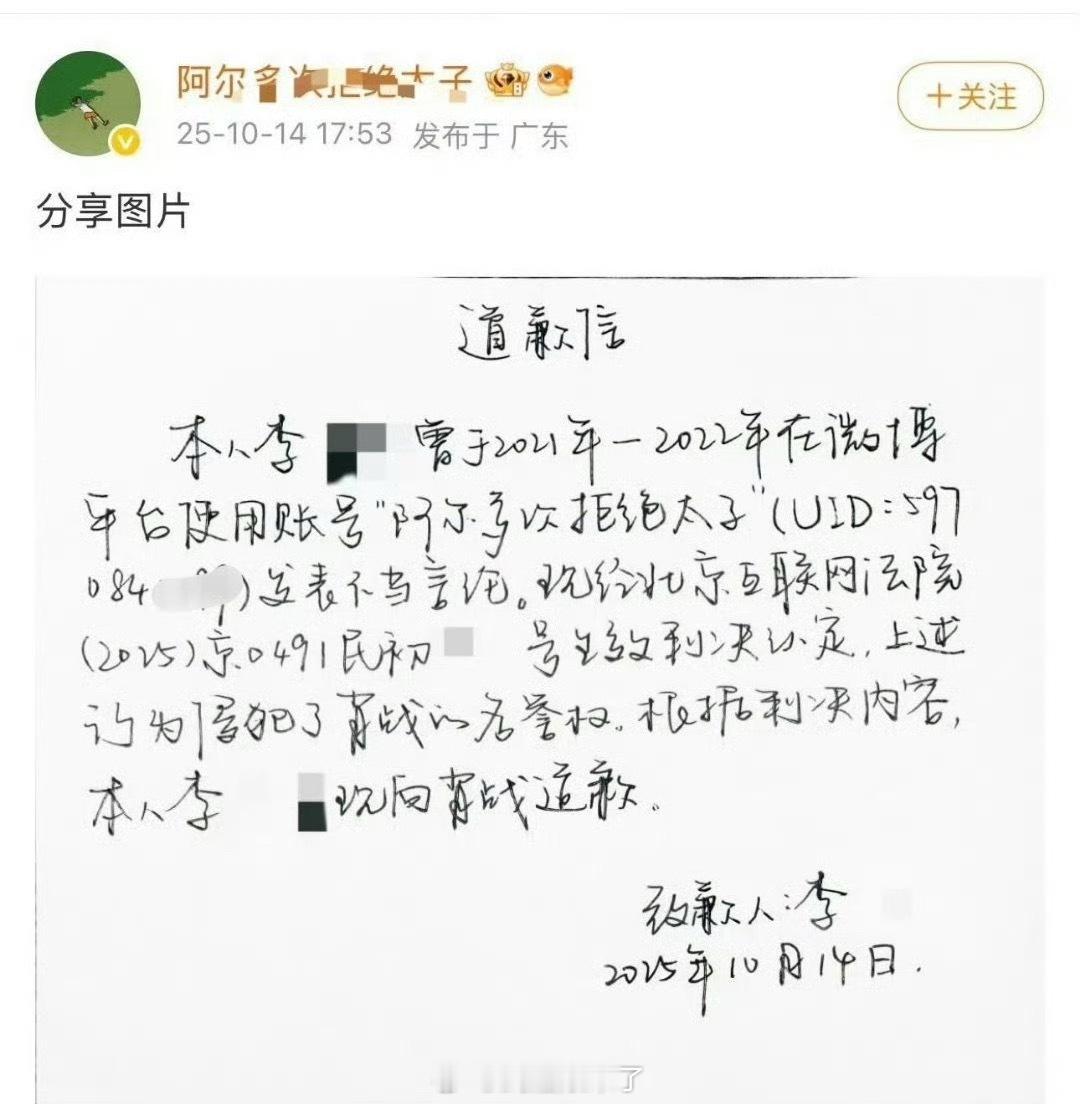 阿尔多次拒绝太子
25-10-14 17:53 发布于 广东
+关注
分享图片
道歉信
本人李 曾于2021年-2022年在微博
平台使用账号“阿尔多次拒绝太子”(UID:597
084 )发表不当言论。现经北京互联网法院
(2025)京0491民初 号生效判决认定,上述
行为侵犯了肖战的名誉权。根据判决内容,
本人李 现向肖战道歉。
致歉人:李
2025年10月14日.
了